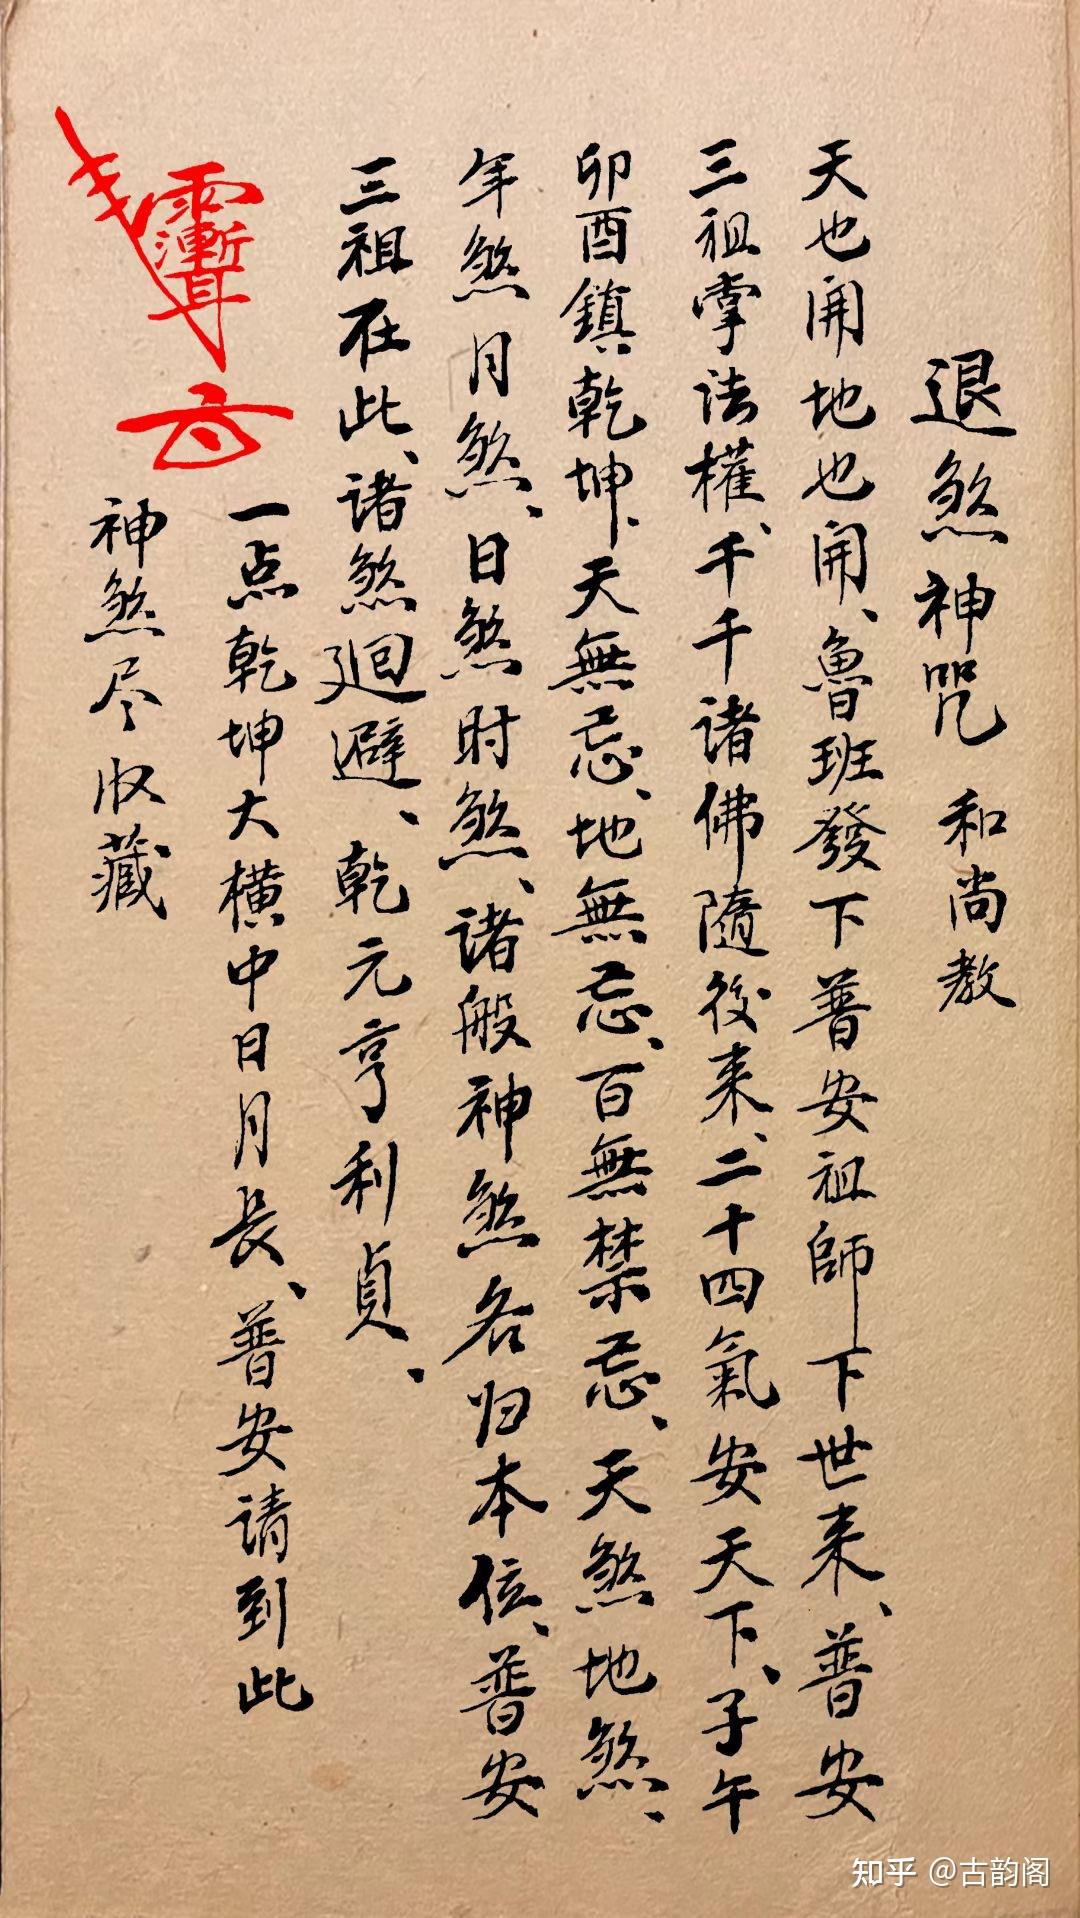 退煞神咒 和尚教
天也開地也開、魯班發下普安祖師下世来、普安
三祖掌法權、千千諸佛隨後来、二十四氣安天下、子午
卯酉鎮乾坤、天無忌、地無忌、百無禁忌、天煞地煞、
年煞月煞、日煞時煞、诸般神煞各归本位、普安
三祖在此、诸煞迴避、乾元亨利貞、
一点乾坤大横中日月長、普安请到此
神煞尽收藏
知乎 @古韵阁